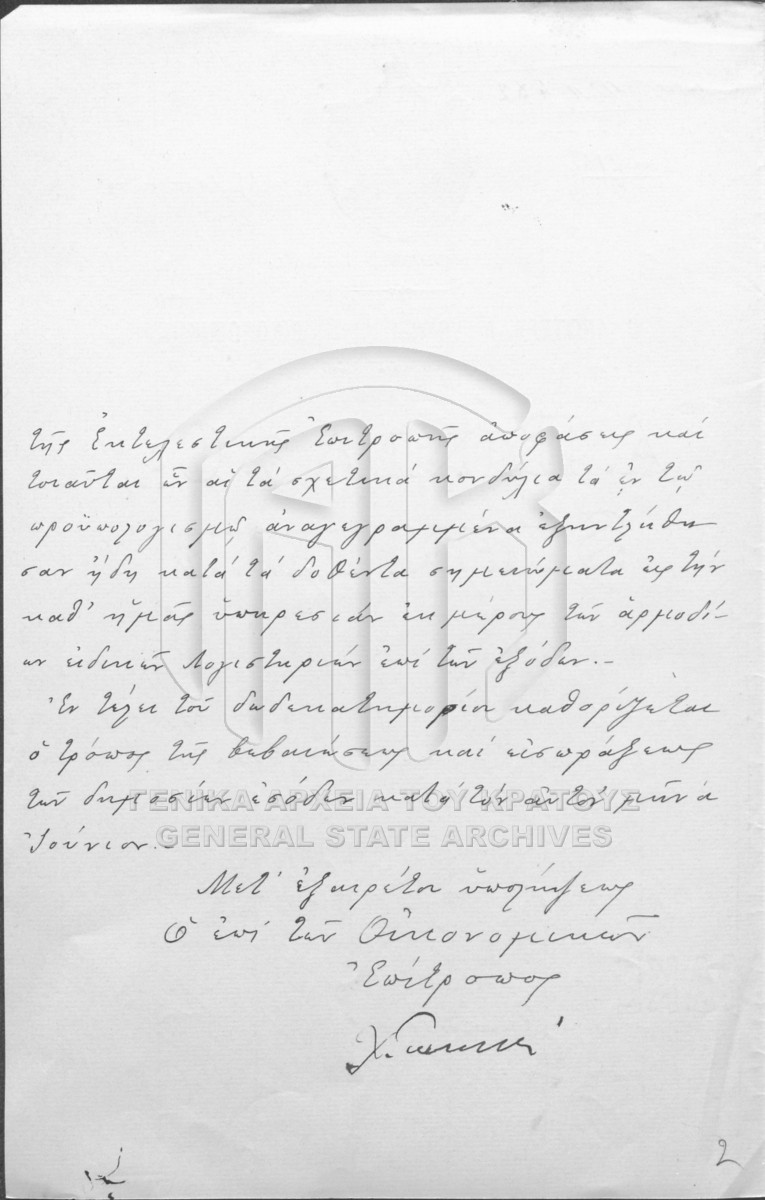 τῆς Ἐκτελεστικῆς Ἐπιτροπῆς ἀποφάσεις καί
τοιαῦται ὧν αἱ τά σχετικά κονδύλια τά ἐν τῷ
προϋπολογισμῷ ἀναγεγραμμένα ἐξηντλήθη
σαν ἤδη κατά τά δοθέντα σημειώματα εἰς τήν
καθ' ἡμᾶς ὑπηρεσίαν ἐκ μέρους τῶν ἁρμοδί-
ων εἰδικῶν Λογιστηρίων ἐπί τῶν ἐξόδων.-
Ἐν τέλει τοῦ δωδεκατημορίου καθορίζεται
ὁ τρόπος τῆς βεβαιώσεως καί εἰσπράξεως
τῶν δημοσίων ἐσόδων κατά τόν αὐτόν μῆνα
Ἰούνιον.-
ΓΕΝΙΚΑ ΑΡΧΕΙΑ ΤΟΥ ΚΡΑΤΟΥΣ
GENERAL STATE ARCHIVES
Μετ' ἐξαιρέτου ὑπολήψεως
Ὁ ἐπί τῶν Οἰκονομικῶν
Ἐπίτροπος
2